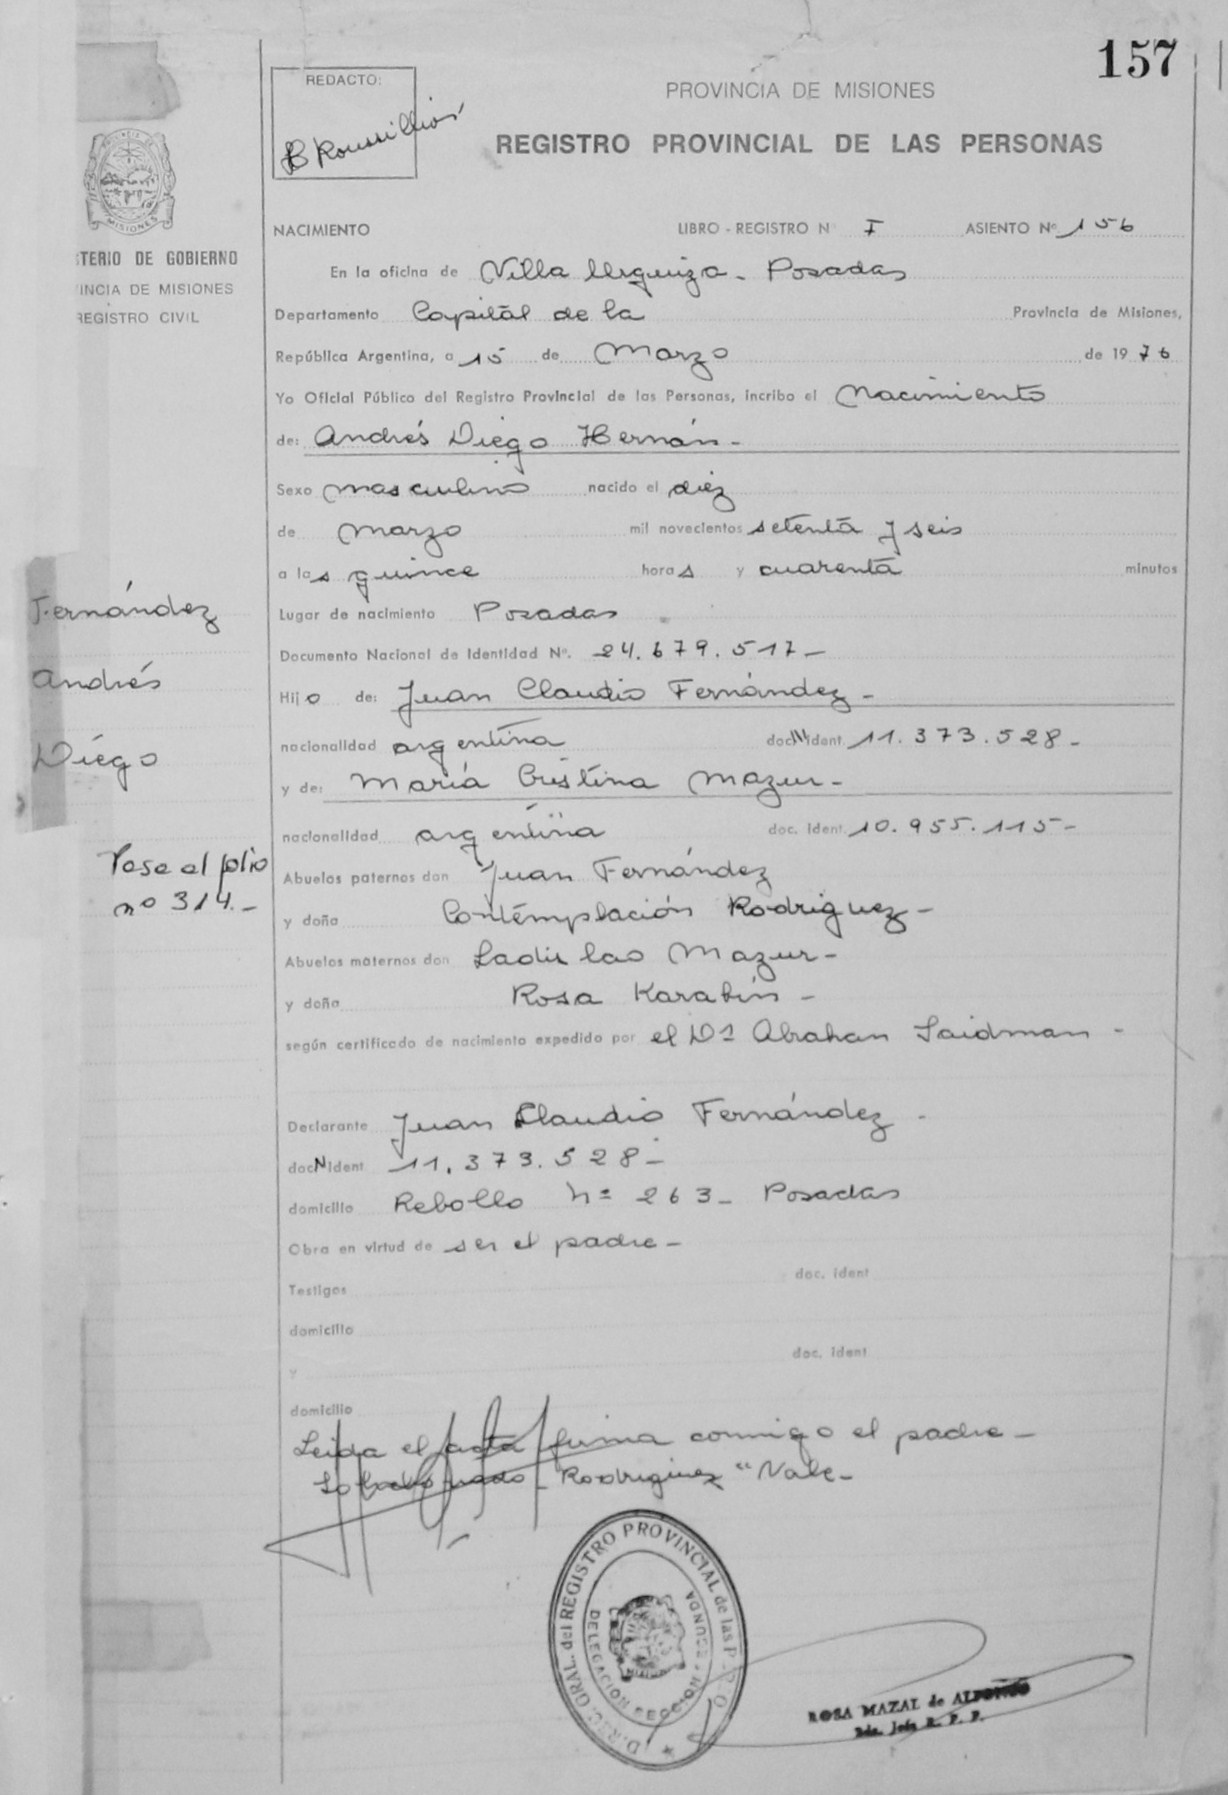 157
REDACTO:
PROVINCIA DE MISIONES
REGISTRO PROVINCIAL DE LAS PERSONAS
MISIONES
STERIO DE GOBIERNO
VINCIA DE MISIONES
REGISTRO CIVIL
NACIMIENTO LIBRO - REGISTRO N° I ASIENTO N° 156
En la oficina de Villa Urquiza - Posadas
Departamento Capital de la Provincia de Misiones,
República Argentina, a 15 de Marzo de 1976
Yo Oficial Público del Registro Provincial de las Personas, incribo el Nacimiento
de: Andrés Diego Hernán -
Sexo masculino nacido el diez
de Marzo mil novecientos setenta y seis
a las quince horas y cuarenta minutos
Fernández
Andrés
Diego
Lugar de nacimiento Posadas
Documento Nacional de Identidad N°. 24.679.517 -
Hijo de: Juan Claudio Fernández -
nacionalidad argentina doc N ident. 11.373.528 -
y de: María Cristina Mazur -
nacionalidad argentina doc. ident. 10.955.115 -
Pase al folio
nº 314. -
Abuelos paternos don Juan Fernández
y doña Contemplación Rodriguez -
Abuelos maternos don Ladislao Mazur -
y doña Rosa Karabin -
según certificado de nacimiento expedido por el Dr Abrahan Saidman -
Declarante Juan Claudio Fernández -
doc N ident 11.373.528 -
domicilio Rebollo Nº 263 - Posadas
Obra en virtud de ser el padre -
Testigos doc. ident
domicilio
y doc. ident
domicilio
Leida el acta firma conmigo el padre -
Rodriguez "Vale -
DIREC. GRAL. del REGISTRO PROVINCIAL de las P.
DELEGACION SECCION SEGUNDA
ROSA MAZAL de ALFONSO